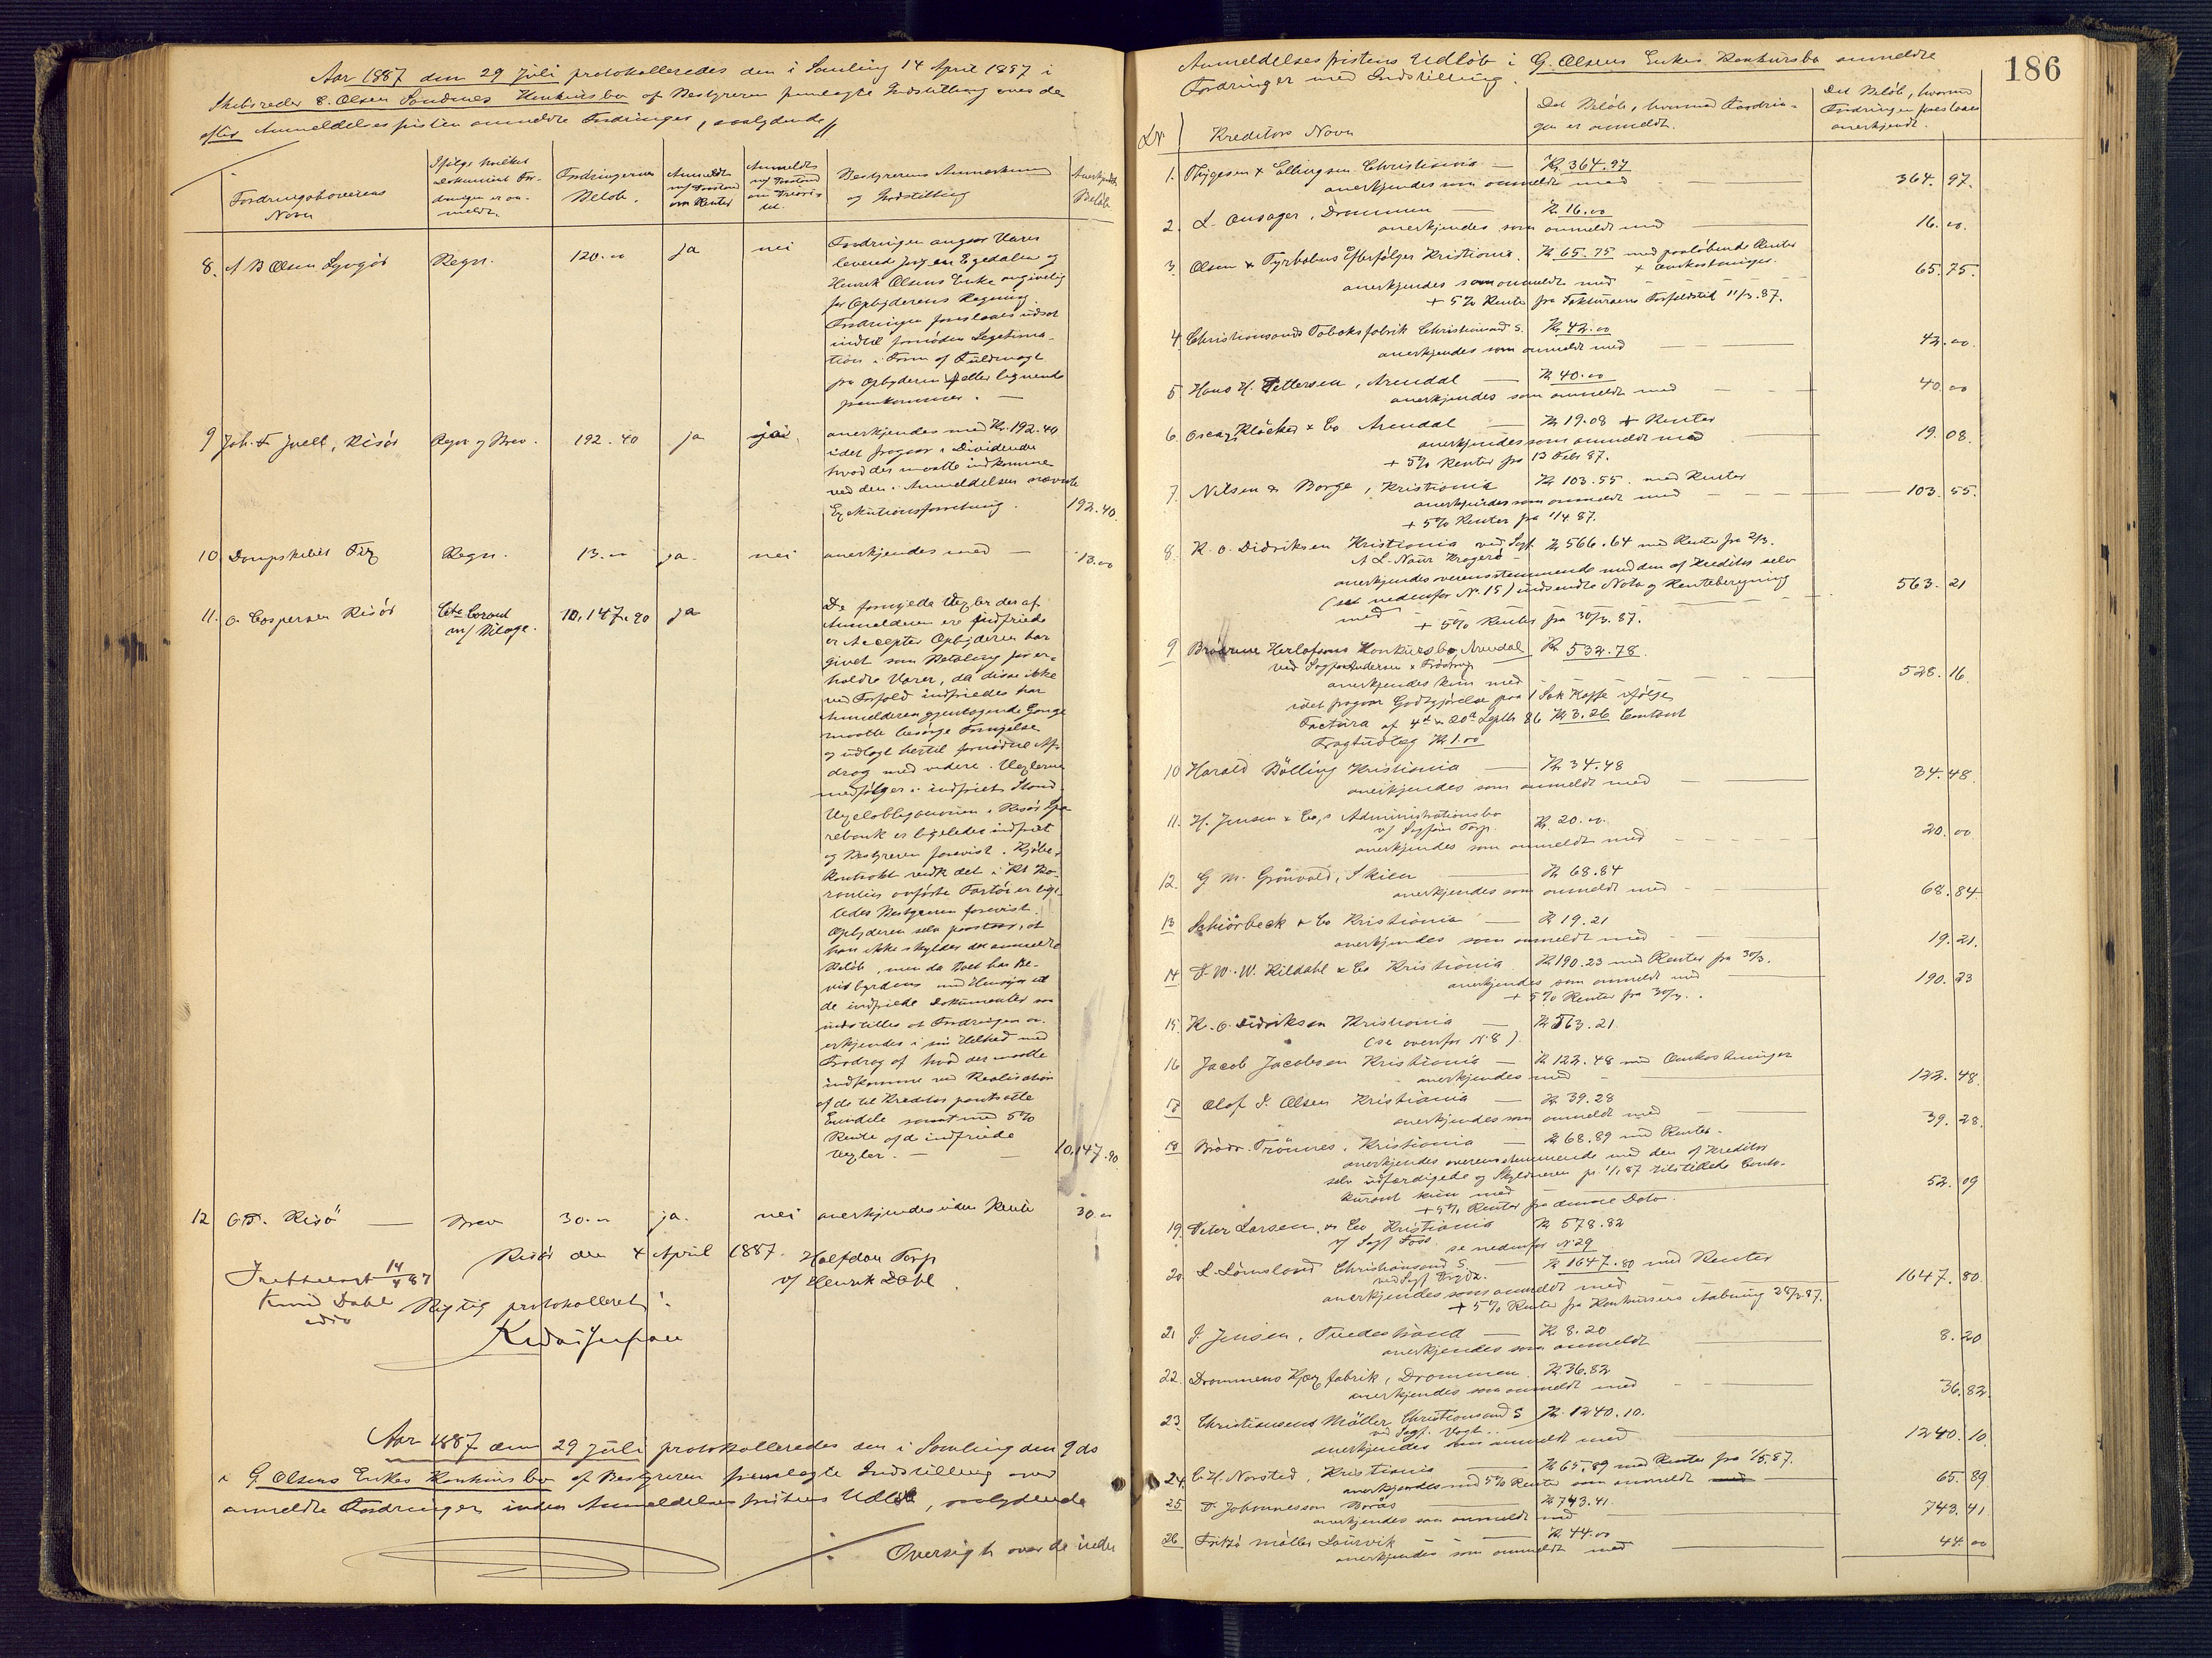 Aar 1887 den 29 Juli protokolleredes den i Samling 14 April 1887 i
Skibsreder E. Olsen Sandnes Konkursbo af Bestyreren fremlagte Indstilling over de
efter Anmeldelsesfristen anmeldte Fordringer, saalydende
Fordringshaverens Navn
Ifølge hvilket Dokument Fordringen er anmeldt.
Fordringernes Beløb.
Anmeldt m/ Paastand om Renter
Anmeldt m/ Paastand om Prioritet.
Bestyrerens Anmærkning og Indstilling
Anerkjendt Beløb.
8. A B Olsen Lyngør Regn. 120.00 ja nei
Fordringen angaar Varer
leveret Jørgen Egedalen og
Henrik Olsens Enke angivelig
for Opbyderens Regning.
Fordringen foreslaaes udsat
indtil fornøden Legitima-
tion i Form af Fuldmagt
fra Opbyderen eller lignende
fremkommer.
9 Joh. F. Juell, Risør Regn og Brev. 192.40 ja
anerkjendes med Kr. 192.40
idet fragaar i Dividende
hvad der maatte indkomme
ved den i Anmeldelsen nævnte
Exekutionsforretning. 192.40.
10. Dampskibet Trg Regn. 13.00 ja. nei anerkjendes med — 13.00
11. O. Caspersen Risør Cto Corrent m/ Bilage. 10,147.90 ja
De fornyede Vexler der af
Anmelderen ere indfriede
er Accepter Opbyderen har
givet som Betaling for er-
holdte Varer, da disse ikke
ved Forfald indfriedes har
Anmelderen gjentagende Gange
maatte besørge Fornyelse
og udlagt hertil fornødne Af-
drag med videre. Vexlerne
medfølger i indfriet Stand.
Vexelobligationen i Risør Spa-
rebank er ligeledes indfriet
og Bestyreren forevist. Kjøbe-
kontrakt vedk det i Kt Ko-
ranten anførte Fartøi er lige-
ledes Bestyreren forevist.
Opbyderen selv paastaar, at
han ikke skylder det anmeldte
Beløb, men da Boet har Be-
visbyrden med Hensyn til
de indfriede Dokumenter saa
indstilles at Fordringen an-
erkjendes i sin Helhed med
Fradrag af hvad der maatte
indkomme ved Realisation
af de til Kreditor pantsatte
Eiendele samt med 5%
Rente af de indfriede
Vexler. — — 10,147.90
12 O.T. Risø — Brev 30.00 ja. nei anerkjendes uden Rente 30.00
Risør den 4 April 1887. Halfdan Torp
v/ Henrik Dahl.
14/4 87
Knud Dahl
Rigtig protokolleret:
Aar 1887 den 29 Juli protokolleredes den i Samling den 9 ds
i G. Olsens Enkes Konkursbo af Bestyreren fremlagte Indstilling over
anmeldte Fordringer inden Anmeldelsesfristens Udløb, saalydende
Oversigt over de inden
186
Anmeldelsesfristens Udløb i G. Olsens Enkes Konkursbo anmeldte
Fordringer med Indstilling.
Lnr Kreditors Navn
Det Beløb, hvormed Fordrin-
gen er anmeldt.
Det Beløb, hvormed
Fordringen foreslaaes
anerkjendt.
1. Thygesen & Ellingsen Christiania — Kr 364.97
anerkjendes som anmeldt med — 364.97.
2. L. Onsager, Drammen — Kr. 16.00
anerkjendes som anmeldt med — 16.00.
3. Olsen & Tyrholms Efterfølger Kristiania. Kr 65.75 med paaløbende Renter
& Omkostninger.
anerkjendes som anmeldt med 65.75.
+ 5% Rente fra Fakturaens Forfaldstid 11/3.87.
4. Christiansands Tobaksfabrik Christiansand S. Kr 42.00
anerkjendes som anmeldt med — 42.00.
5 Hans H. Pettersen, Arendal — Kr 40.00
anerkjendes som anmeldt med — 40.00
6. Oscar Kløcker & Co Arendal — Kr 19.08 + Renter
anerkjendes som anmeldt med 19.08.
+ 5% Renter fra 13 Febr 87.
7. Nilsen & Borge, Kristiania Kr 103.55. med Renter
anerkjendes som anmeldt med — 103.55.
+ 5% Renter fra 1/4 87.
8. K. O. Didriksen Kristiania ved Sagf. Kr 566.64 med Rente fra 2/3.
A L. Naur Kragerø
anerkjendes overensstemmende med den af Kreditor selv
(se nedenfor No. 15) indsendte Nota og Renteberegning
med 563.21
+ 5% Renter fra 30/3.87.
9 Brødrene Herlofsons Konkursbo, Arendal Kr 532.78.
ved Sagf Andersen & Frøstrup
anerkjendes kun med — 528.16.
idet fragaar Godtgjørelse paa 1 Sæk Kaffe ifølge
Factura af 4de & 20de Septbr 86 Kr 3.26 Contant
Fragtudlæg Kr 1.00
10 Harald Bølling Kristiania — Kr 34.48
anerkjendes som anmeldt med — 34.48.
11. H. Jensen & Co,s Administrationsbo
v/ Sagfører Torp. Kr. 20.00.
anerkjendes som anmeldt med — 20.00
12. G M. Grønvold, Skien — Kr 68.84
anerkjendes som anmeldt med — 68.84.
13 Schiørbeck & Co Kristiania — Kr 19.21
anerkjendes som anmeldt med — 19.21.
14 F. W. W. Kildahl & Co Kristiania. Kr 190.23 med Renter fra 30/3.
anerkjendes som anmeldt med 190.23
+ 5% Renter fra 30/3.
15. K. O. Didriksen Kristiania — Kr 563.21.
(se ovenfor No 8).
16 Jacob Jacobsen Kristiania — Kr 122.48 med Omkostninger
anerkjendes med — 122.48.
17 Olof I. Olsen Kristiania — Kr 39.28
anerkjendes som anmeldt med — 39.28.
18 Brødr. Trønnes. Kristiania — Kr 68.89 med Renter.
anerkjendes overensstemmende med den af Kreditor
selv udfærdigede og Skyldneren pr. 1/1 87 tilstillede Conto-
kurant kun med 52.09
+ 5% Renter fra denne Dato.
19. Peter Larsen & Co Kristiania Kr 578.82
v/ Sagf. Foss. se nedenfor No 29
20. L. Lømsland Christiansand S. — Kr 1647.80 med Renter
anerkjendes som anmeldt med 1647.80.
+ 5% Rente fra Konkursens Aabning 28/2 87.
21 J. Jensen, Tvedestrand — Kr. 8.20
anerkjendes som anmeldt — 8.20
22. Drammens Kjæxfabrik, Drammen. Kr 36.82
anerkjendes som anmeldt med — 36.82.
23. Christiansens Møller, Christiansand S Kr. 1240.10.
ved Sagf. Vogt.
anerkjendes som anmeldt med 1240.10.
24. C. H. Norsted, Kristiania — Kr 65.89 med Renter fra 1/5.87.
anerkjendes med 5% Renter som anmeldt 65.89
25. F. Johannesson Borås Kr 743.41.
anerkjendes som anmeldt med — 743.41
26. Fritzø møller Laurvik — Kr. 44.00
anerkjendes som anmeldt med — 44.00